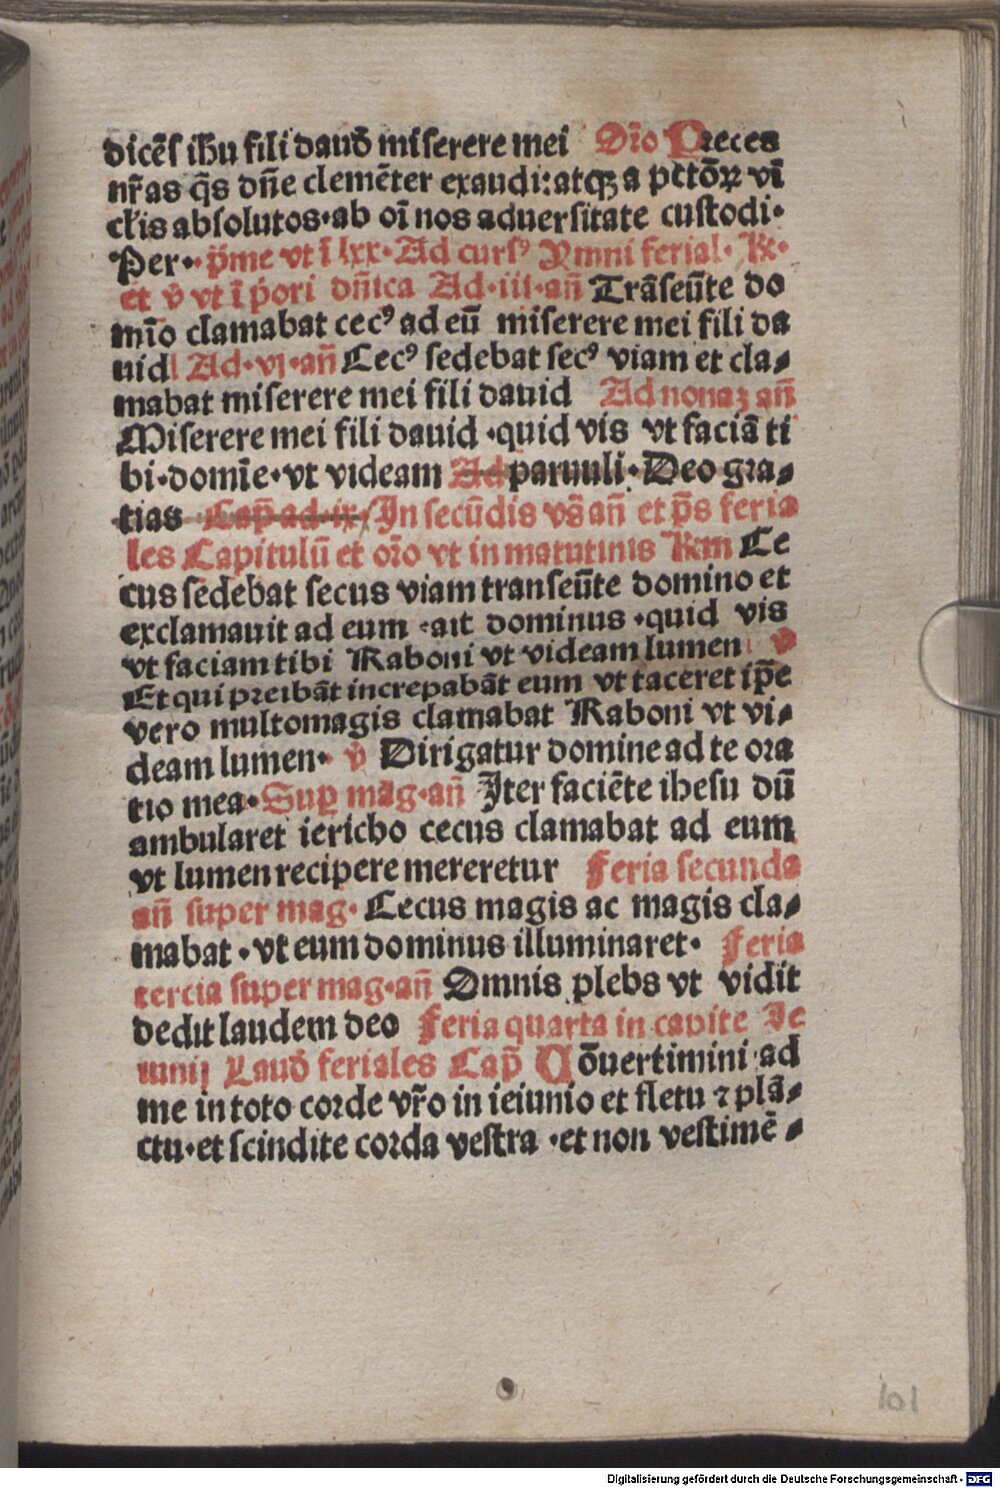 dicēs ihū fili dauid̄ miserere mei Oīo Preces
nr̄as q̄s dn̄e clemēter exaudi: atqꝫ a pctōꝝ vī
cl̄is absolutos·ab oī nos aduersitate custodi·
Per· p̄me vt ī lxx·Ad curs⁹ Ymni ferial· R̄·
et v̄ vt ī p̄ori dn̄ica Ad·iii·an̄ Trāseūte do
mīo clamabat cec⁹ ad eū miserere mei fili da
uid Ad·vj·an̄ Cec⁹ sedebat sec⁹ viam et cla⸗
mabat miserere mei fili dauid Ad nonaꝫ an̄
Miserere mei fili dauid ·quid vis vt faciā ti
bi·domīe·vt videam Ad paruuli·Deo gra⸗
tias Cap̄ ad·ix· In secūdis vs̄ an̄ et p̄s feria
les Capitulū et or̄o vt in matutinis R̄m Ce
cus sedebat secus viam transeūte domino et
exclamauit ad eum ·ait dominus ·quid vis
vt faciam tibi Raboni vt videam lumen v̄
Et qui preibāt increpabāt eum vt taceret ip̄e
vero multomagis clamabat Raboni vt vi⸗
deam lumen· v̄ Dirigatur domine ad te ora
tio mea·Suꝑ mag·an̄ Iter faciēte ihesu dū
ambularet iericho cecus clamabat ad eum
vt lumen recipere mereretur Feria secunda
an̄ super mag· Cecus magis ac magis cla⸗
mabat ·vt eum dominus illuminaret· Feria
tercia super mag·an̄ Omnis plebs vt vidit
dedit laudem deo Feria quarta in capite Ie
iunij Laud̄ feriales Cap̄ Cōuertimini ad
me in toto corde vr̄o in ieiunio et fletu ⁊ plā⸗
ctu·et scindite corda vestra ·et non vestimē⸗
101
Digitalisierung gefördert durch die Deutsche Forschungsgemeinschaft - DFG